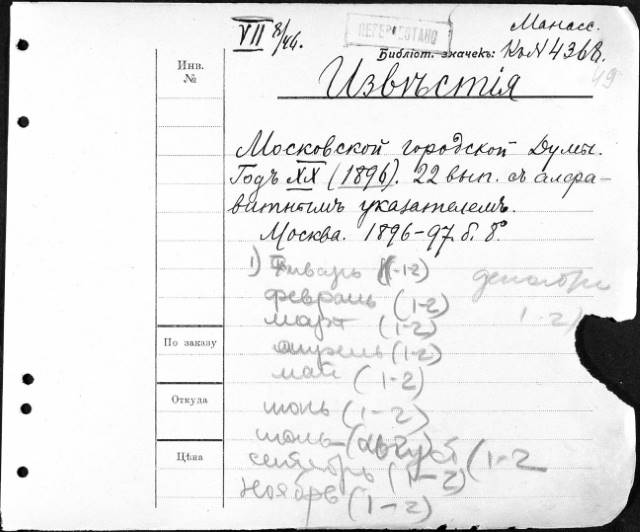 VII 8/46.
ПЕРЕРАБОТАНО
Манасс.
Библіот. значекъ: К №4368.
49
Инв.
№
Извѣстія
Московской городской Думы.
Годъ XX (1896). 22 вып. съ алфа-
витнымъ указателемъ.
Москва. 1896-97. б. 8°.
1) Январь (1-2)
декабрь
февраль (1-2)
1-2)
март (1-2)
апрель (1-2)
По заказу
май (1-2)
Откуда
июнь (1-2)
июль-(август (1-2
Цѣна
сентябрь (1-2)
Ноябрь (1-2)